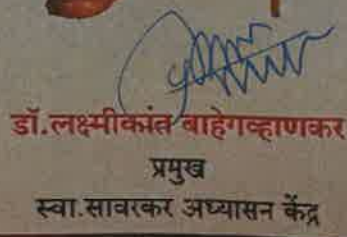 डॉ.लक्ष्मीकांत बाहेगव्हाणकर
प्रमुख
स्वा.सावरकर अध्यासन केंद्र